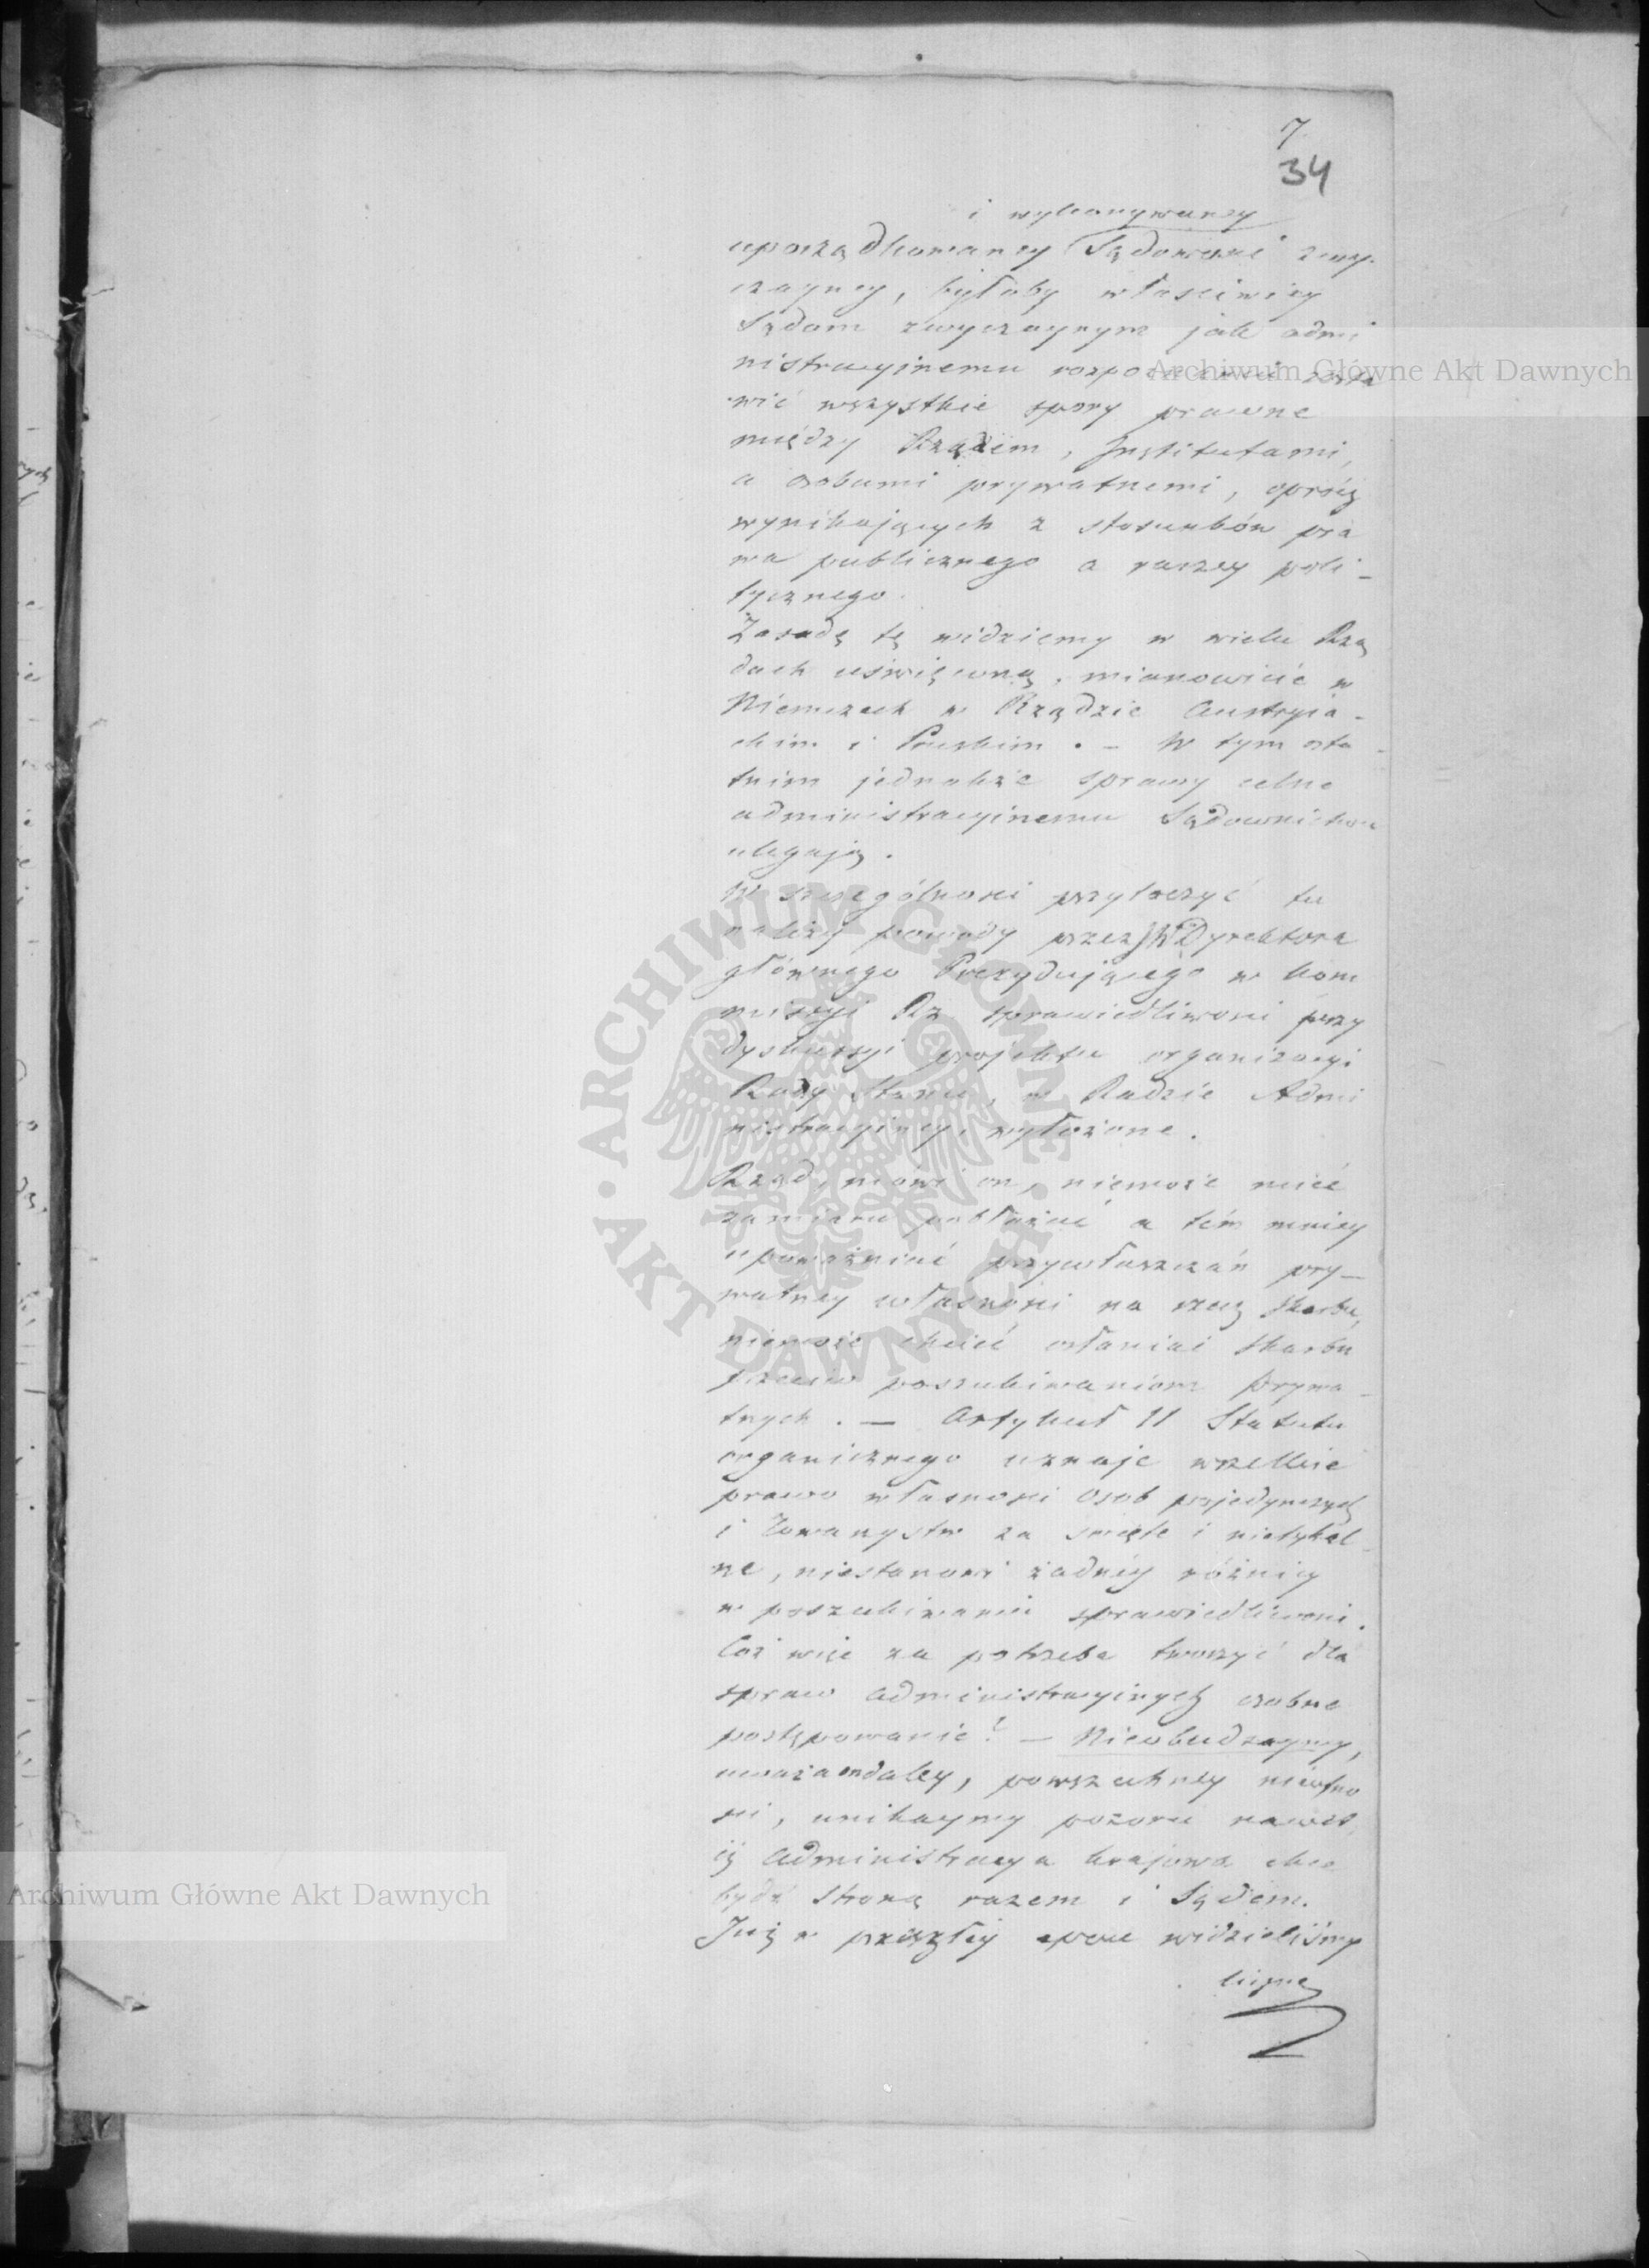 7
34
i wykonywaney
uporządkowaney Sądowości zwy-
czayney, byłoby właściwiey
Sądom zwyczaynym jak admi
nistracyinemu
wić wszystkie spory prawne
między Rządem, Institutami,
a osobami prywatnemi, oprócz
wynikających z stosunków pra
wa publicznego a raczey poli-
tycznego.
Zasadę tę widziemy w wielu Rzą
dach uświęconą, mianowicie w
Niemczech w Rządzie Austryia-
ckim i Pruskim. - W tym osta-
tnim jednakże sprawy celne
administracyinemu Sądownictwu
ulegają.
W szczególności przytoczyć tu
należy powody przez JW Dyrektora
głównego Prezydującego w Kom
missyi Rz sprawiedliwości przy
dyskussyi projektu organizacyi
Rady Stanu, w Radzie Admi
nistracyiney, wyłożone.
Rząd, mówi on, niemoże mieć
zamiaru pobłażać a tém mniey
upoważniać przywłaszczań pry-
watney własności na rzecz Skarbu,
niemoże chcieć osłaniać Skarbu
przeciw poszukiwaniom prywa-
tnych. - Artykuł 11 Statutu
organicznego uznaje wszelkie
prawo własności osob pojedynczych
i Towarzystw za święte i nietykal-
ne, niestanowi żadnéy różnicy
w poszukiwaniu sprawiedliwości.
Coż więc za potrzeba tworzyć dla
spraw administracyinych osobne
postępowanie? - Nieobudzaymy,
uważa on daley, powszechney nieufno
ści, unikaymy pozoru nawet,
iż Administracya krajowa chce
bydź stroną razem i Sądem.
Już w przeszłéy epoce widzieliśmy
Archiwum Główne Akt Dawnych
Archiwum Główne Akt Dawnych
ARCHIWUM GŁÓWNE · AKT DAWNYCH ·